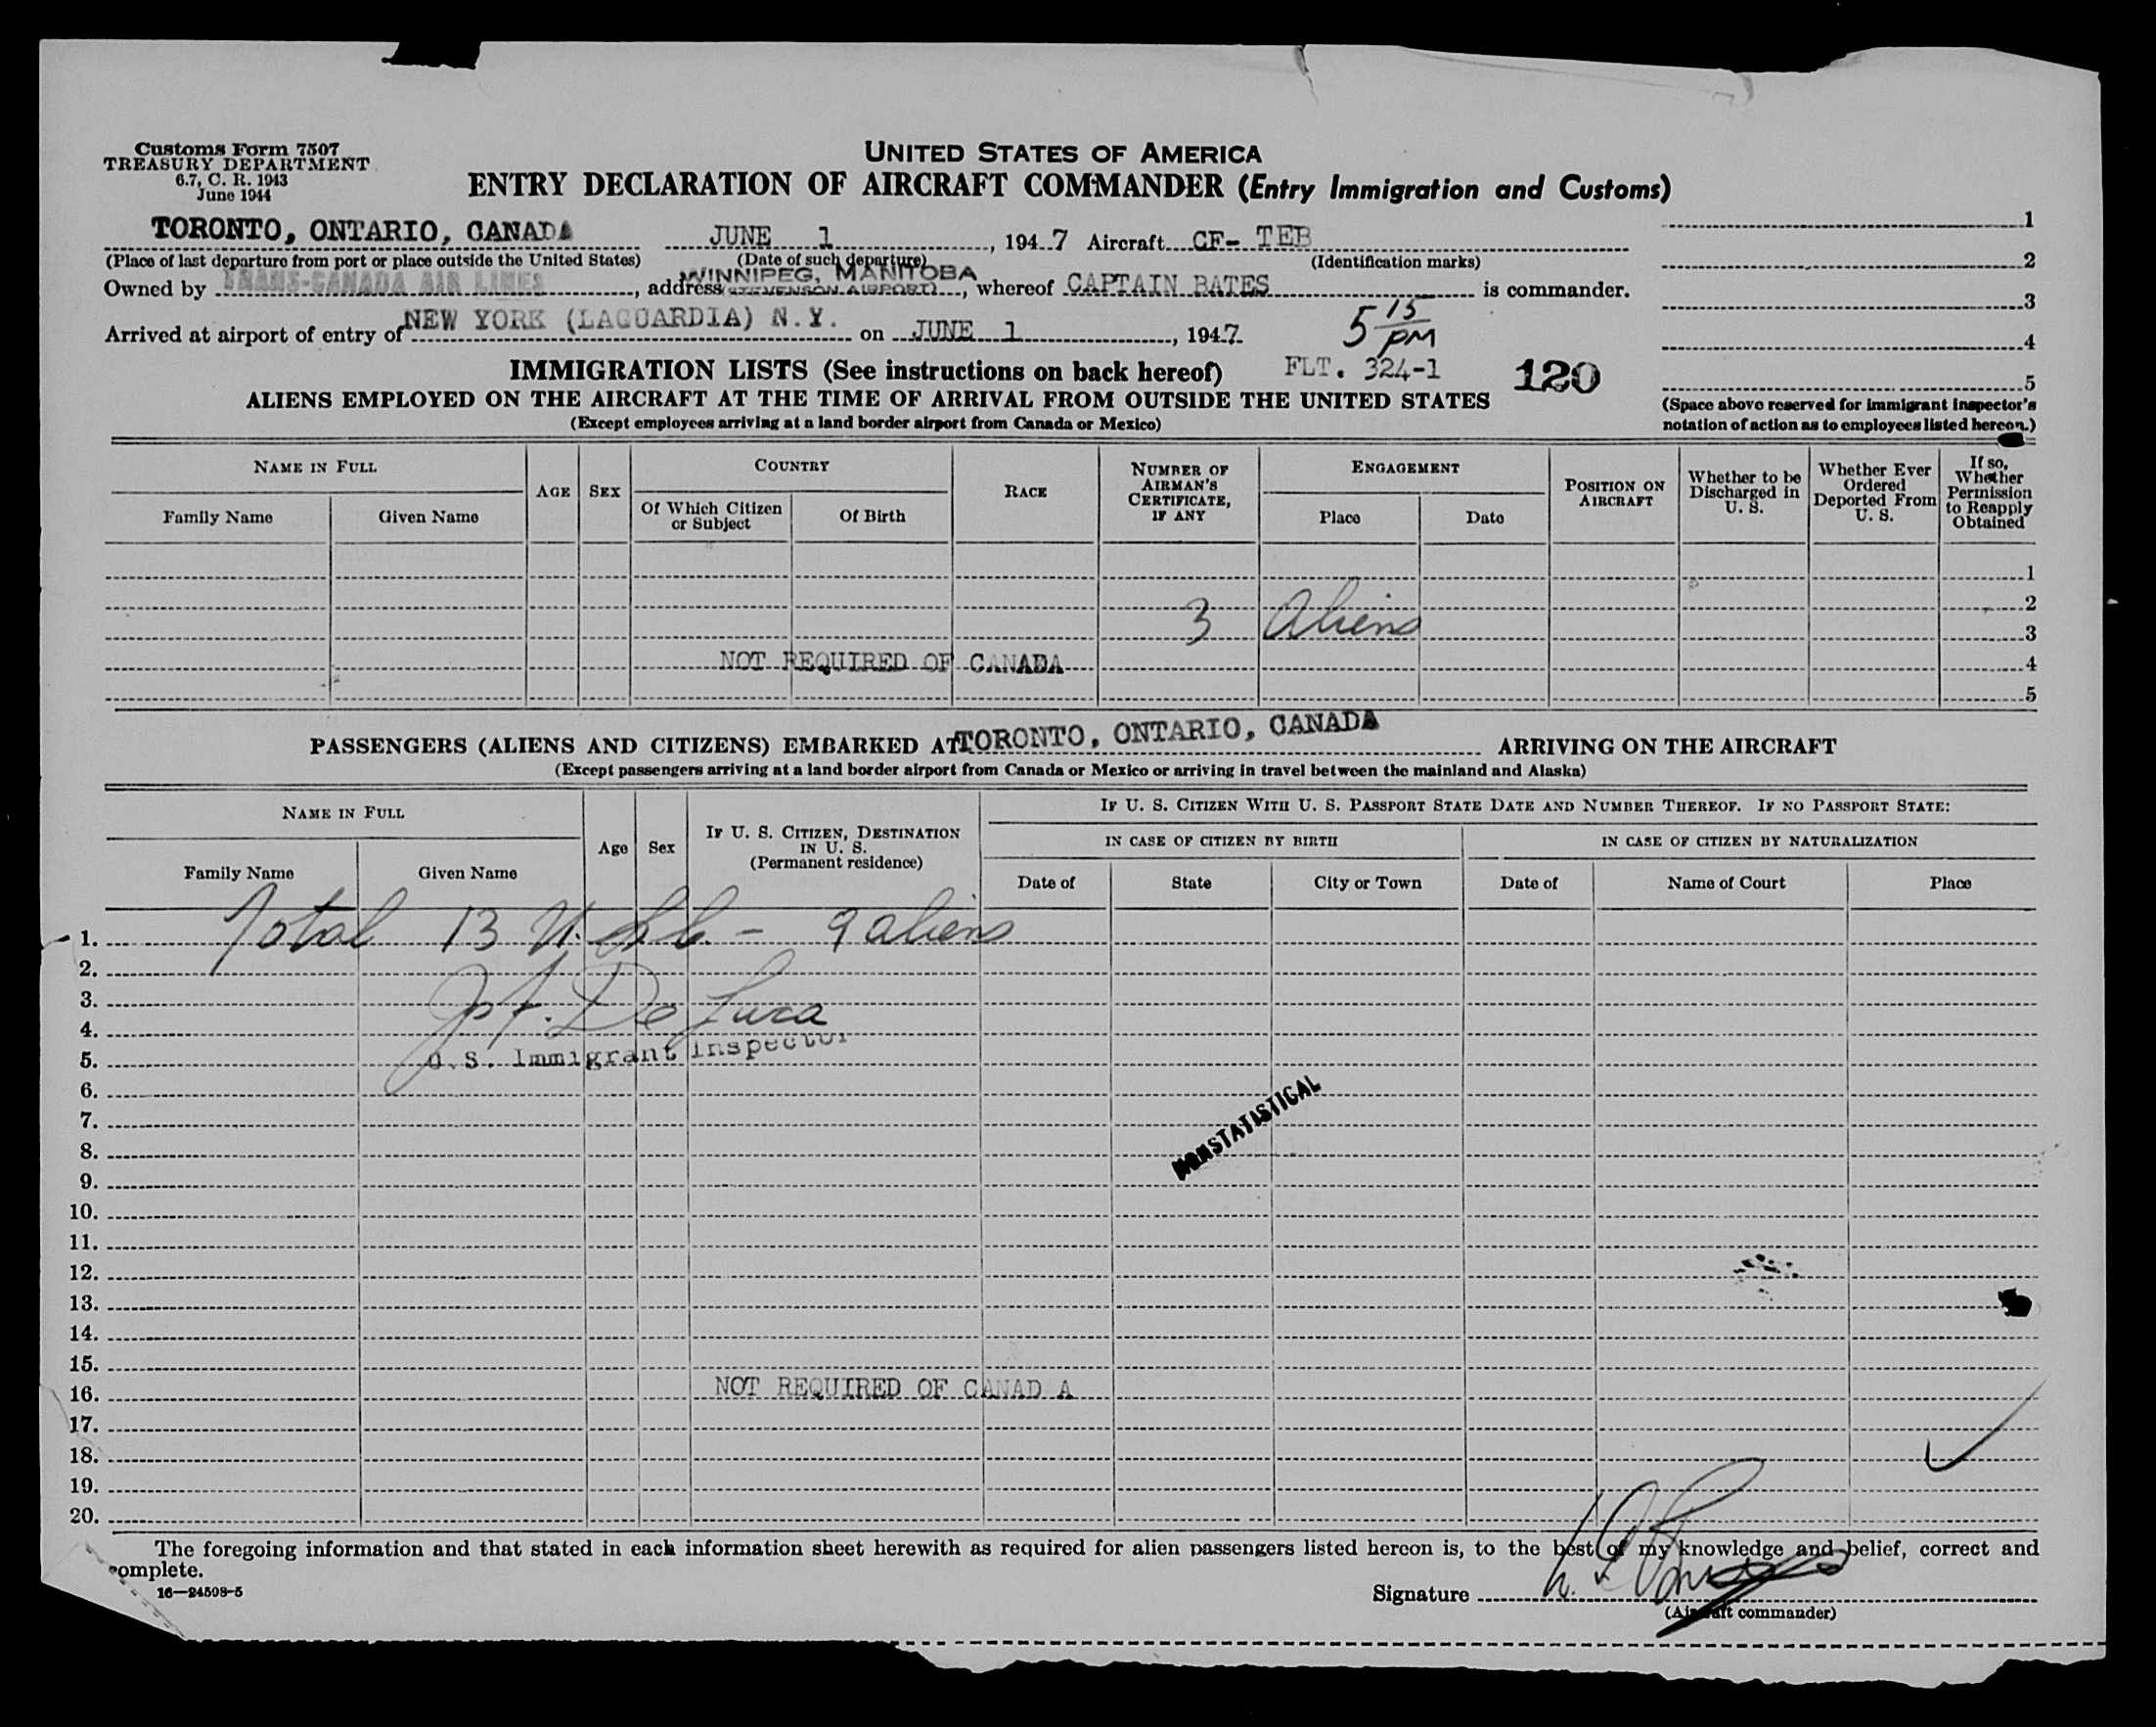 Customs Form 7507
TREASURY DEPARTMENT
6.7, C. R. 1943
June 1944
UNITED STATES OF AMERICA
ENTRY DECLARATION OF AIRCRAFT COMMANDER (Entry Immigration and Customs)
TORONTO, ONTARIO, CANADA JUNE 1, 1947 Aircraft CF- TEB
(Place of last departure from port or place outside the United States) (Date of such departure) (Identification marks)
Owned by TRANS-CANADA AIR LINES, address WINNIPEG, MANITOBA (STEVENSON AIRPORT), whereof CAPTAIN BATES is commander.
Arrived at airport of entry of NEW YORK (LAGUARDIA) N.Y. on JUNE 1, 1947. 5 15 PM
1
2
3
4
5
(Space above reserved for immigrant inspector's
notation of action as to employees listed hereon.)
IMMIGRATION LISTS (See instructions on back hereof) FLT. 324-1 120
ALIENS EMPLOYED ON THE AIRCRAFT AT THE TIME OF ARRIVAL FROM OUTSIDE THE UNITED STATES
(Except employees arriving at a land border airport from Canada or Mexico)
NAME IN FULL
Family Name Given Name
AGE SEX
COUNTRY
Of Which Citizen or Subject Of Birth
RACE
NUMBER OF AIRMAN'S CERTIFICATE, IF ANY
ENGAGEMENT
Place Date
POSITION ON AIRCRAFT
Whether to be Discharged in U. S.
Whether Ever Ordered Deported From U. S.
If so, Whether Permission to Reapply Obtained
1
2
3 Aliens
3
NOT REQUIRED OF CANADA 4
5
PASSENGERS (ALIENS AND CITIZENS) EMBARKED AT TORONTO, ONTARIO, CANADA ARRIVING ON THE AIRCRAFT
(Except passengers arriving at a land border airport from Canada or Mexico or arriving in travel between the mainland and Alaska)
NAME IN FULL
Family Name Given Name
Age Sex
IF U. S. CITIZEN, DESTINATION IN U. S.
(Permanent residence)
IF U. S. CITIZEN WITH U. S. PASSPORT STATE DATE AND NUMBER THEREOF. IF NO PASSPORT STATE:
IN CASE OF CITIZEN BY BIRTH IN CASE OF CITIZEN BY NATURALIZATION
Date of State City or Town Date of Name of Court Place
1. Total 13 - 9 aliens
2.
3. De Luca
4.
5. U.S. Immigrant Inspector
6.
7.
NONSTATISTICAL
8.
9.
10.
11.
12.
13.
14.
15.
16. NOT REQUIRED OF CANAD A
17.
18.
19.
20.
The foregoing information and that stated in each information sheet herewith as required for alien passengers listed hereon is, to the best of my knowledge and belief, correct and
complete.
16—24598-5
Signature
(Aircraft commander)